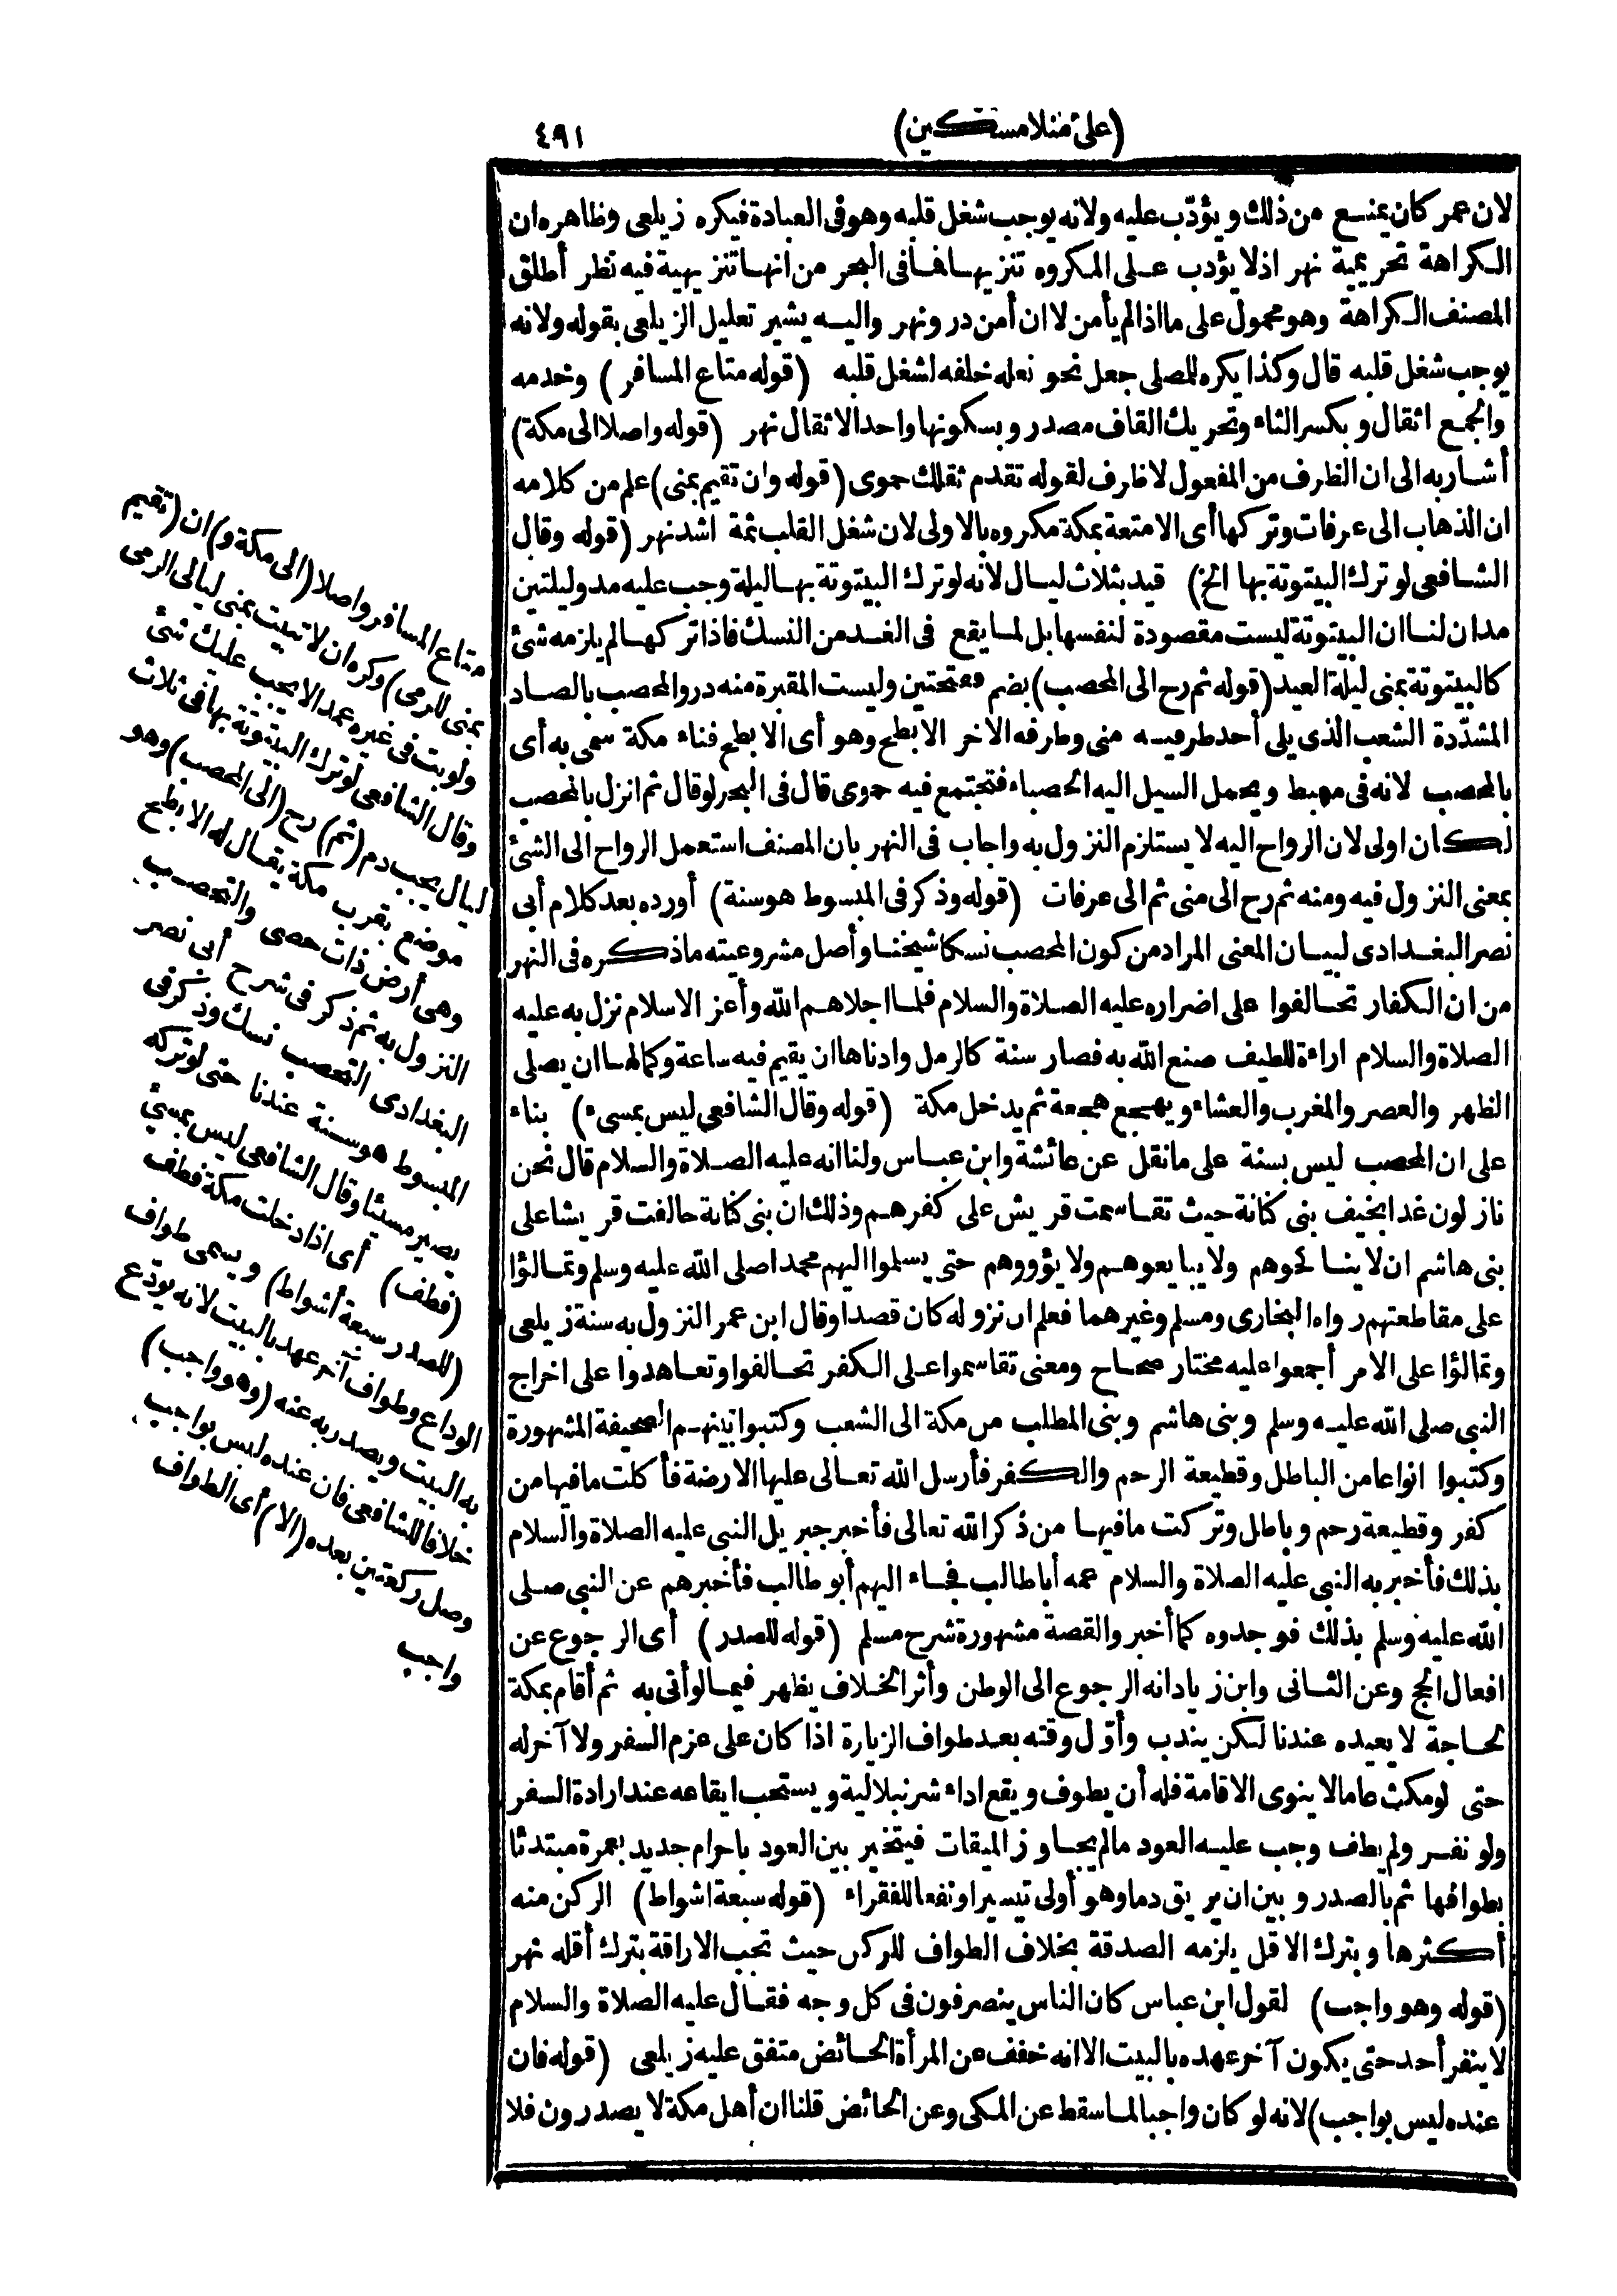 (على منلا مسكين)
٤٩١
لان عمر كان يمنع من ذلك ويؤدّب عليه ولانه يوجب شغل قلبه وهو فى العبادة فيكره زيلعى وظاهره ان
الكراهة تحريمية نهر اذ لا يؤدب على المكروه تنزيها فما فى البحر من انها تنزيهية فيه نظر أطلق
المصنف الكراهة وهو محمول على ما اذا لم يأمن لا ان أمن در ونهر واليه يشير تعليل الزيلعى بقوله ولانه
يوجب شغل قلبه قال وكذا يكره للمصلى جعل نحو نعله خلفه لشغل قلبه (قوله متاع المسافر) وخدمه
والجمع اثقال وبكسر الثاء وتحريك القاف مصدر وبسكونها واحد الاثقال نهر (قوله واصلا الى مكة)
أشار به الى ان الظرف من المفعول لا ظرف لقوله تقدم ثقلك حموى (قوله وان تقيم بمنى) علم من كلامه
ان الذهاب الى عرفات وتركها أى الامتعة بمكة مكروه بالاولى لان شغل القلب ثمة اشد نهر (قوله وقال
الشافعى لو ترك البيتوتة بها الخ) قيد بثلاث ليال لانه لو ترك البيتوتة بها ليلة وجب عليه مد وليلتين
مدان لنا ان البيتوتة ليست مقصودة لنفسها بل لما يقع فى الغد من النسك فاذا تركها لم يلزمه شئ
كالبيتوتة بمنى ليلة العيد (قوله ثم رح الى المحصب) بضم ففتحتين وليست المقبرة منه در والمحصب بالصاد
المشدّدة الشعب الذى يلى أحد طرفيه منى وطرفه الاخر الابطح وهو أى الابطح فناء مكة سمى به أى
بالمحصب لانه فى مهبط ويحمل السيل اليه الحصباء فتجتمع فيه حموى قال فى البحر لو قال ثم انزل بالمحصب
لكان اولى لان الرواح اليه لا يستلزم النزول به واجاب فى النهر بان المصنف استعمل الرواح الى الشئ
بمعنى النزول فيه ومنه ثم رح الى منى ثم الى عرفات (قوله وذكر فى المبسوط هو سنة) أورده بعد كلام أبى
نصر البغدادى لبيان المعنى المراد من كون المحصب نسكا شيخنا وأصل مشروعيته ما ذكره فى النهر
من ان الكفار تحالفوا على اضراره عليه الصلاة والسلام فلما اجلاهم الله وأعز الاسلام نزل به عليه
الصلاة والسلام اراءة للطيف صنع الله به فصار سنة كالرمل وادناها ان يقيم فيه ساعة وكمالها ان يصلى
الظهر والعصر والمغرب والعشاء ويهجع هجعة ثم يدخل مكة (قوله وقال الشافعى ليس بمسىء) بناء
على ان المحصب ليس بسنة على ما نقل عن عائشة وابن عباس ولنا انه عليه الصلاة والسلام قال نحن
نازلون غدا بخيف بنى كنانة حيث تقاسمت قريش على كفرهم وذلك ان بنى كنانة حالفت قريشا على
بنى هاشم ان لا ينا كحوهم ولا يبايعوهم ولا يؤووهم حتى يسلموا اليهم محمدا صلى الله عليه وسلم وتمالؤا
على مقاطعتهم رواه البخارى ومسلم وغيرهما فعلم ان نزوله كان قصدا وقال ابن عمر النزول به سنة زيلعى
وتمالؤا على الامر أجمعوا عليه مختار صحاح ومعنى تقاسموا على الكفر تحالفوا وتعاهدوا على اخراج
النبى صلى الله عليه وسلم وبنى هاشم وبنى المطلب من مكة الى الشعب وكتبوا بينهم الصحيفة المشهورة
وكتبوا انواعا من الباطل وقطيعة الرحم والكفر فأرسل الله تعالى عليها الارضة فأكلت ما فيها من
كفر وقطيعة رحم وباطل وتركت ما فيها من ذكر الله تعالى فأخبر جبريل النبى عليه الصلاة والسلام
بذلك فأخبر به النبى عليه الصلاة والسلام عمه أبا طالب فجاء اليهم أبو طالب فأخبرهم عن النبى صلى
الله عليه وسلم بذلك فوجدوه كما أخبر والقصة مشهورة شرح مسلم (قوله للصدر) أى الرجوع عن
افعال الحج وعن الثانى وابن زياد انه الرجوع الى الوطن وأثر الخلاف يظهر فيما لو أتى به ثم أقام بمكة
لحاجة لا يعيده عندنا لكن يندب وأوّل وقته بعد طواف الزيارة اذا كان على عزم السفر ولا آخر له
حتى لو مكث عاما لا ينوى الاقامة فله أن يطوف ويقع اداء شرنبلالية ويستحب ايقاعه عند ارادة السفر
ولو نفر ولم يطف وجب عليه العود ما لم يجاوز الميقات فيتخير بين العود باحرام جديد بعمرة مبتدئا
بطوافها ثم بالصدر وبين ان يريق دما وهو أولى تيسيرا ونفعا للفقراء (قوله سبعة اشواط) الركن منه
أكثرها وبترك الاقل يلزمه الصدقة بخلاف الطواف للركن حيث تجب الاراقة بترك أقله نهر
(قوله وهو واجب) لقول ابن عباس كان الناس ينصرفون فى كل وجه فقال عليه الصلاة والسلام
لا ينفر أحد حتى يكون آخر عهده بالبيت الا انه خفف عن المرأة الحائض متفق عليه زيلعى (قوله فان
عنده ليس بواجب) لانه لو كان واجبا لما سقط عن المكى وعن الحائض قلنا ان أهل مكة لا يصدرون فلا
متاع المسافر واصلا (الى مكة و) ان (تقيم
بمنى للرمى) وكره ان لا تبيت بمنى ليالى الرمى
ولو بت فى غيره عمدا لا يجب عليك شئ
وقال الشافعى لو ترك البيتوتة بها فى ثلاث
ليال يجب دم (ثم) رح (الى المحصب) وهو
موضع بقرب مكة يقال له الابطح
وهى أرض ذات حصى والتحصيب
النزول به ثم ذكر فى شرح أبى نصر
البغدادى التحصب نسك وذكر فى
المبسوط هو سنة عندنا حتى لو تركه
يصير مسئا وقال الشافعى ليس بمسئ
(فطف) أى اذا دخلت مكة فطف
(للصدر سبعة أشواط) ويسمى طواف
الوداع وطواف آخر عهد بالبيت لانه يودّع
به البيت ويصدر به عنه (وهو واجب)
خلافا للشافعى فان عنده ليس بواجب
وصل ركعتين بعده (الا) أى الطواف
واجب